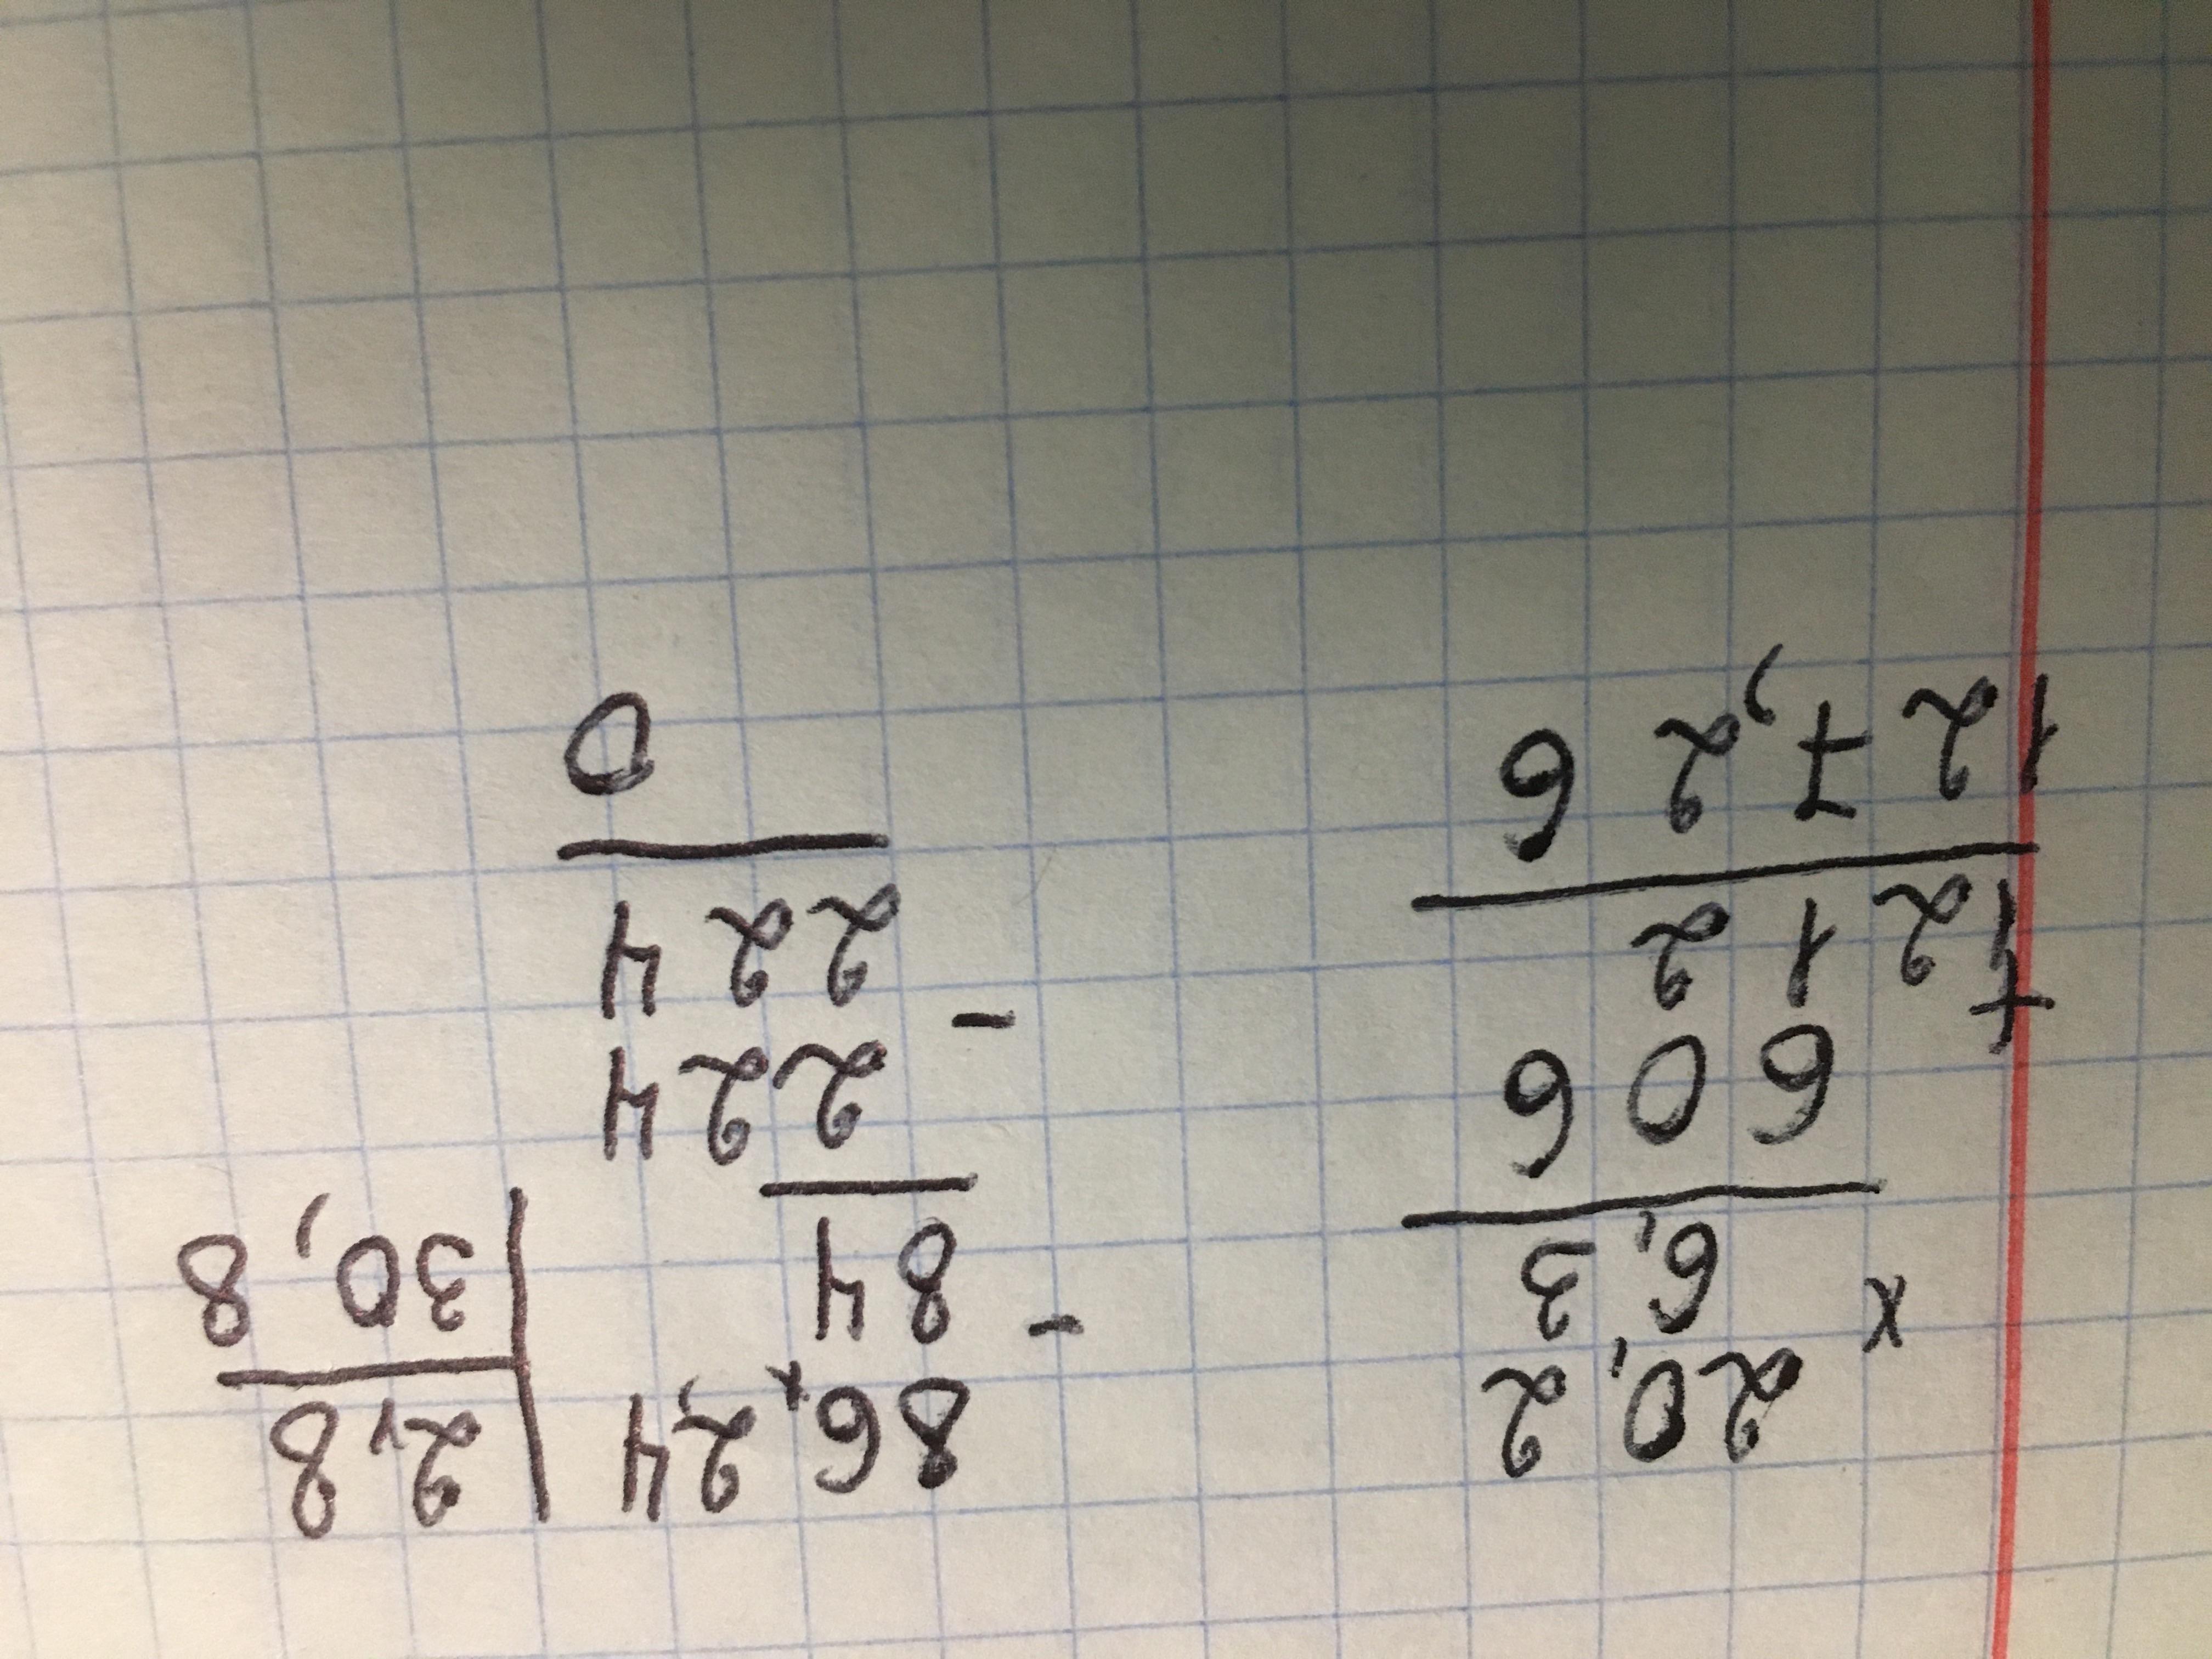 × 20,2
6,3
606
+ 1212
127,26
- 86,24 | 2,8
84 | 30,8
- 224
224
0